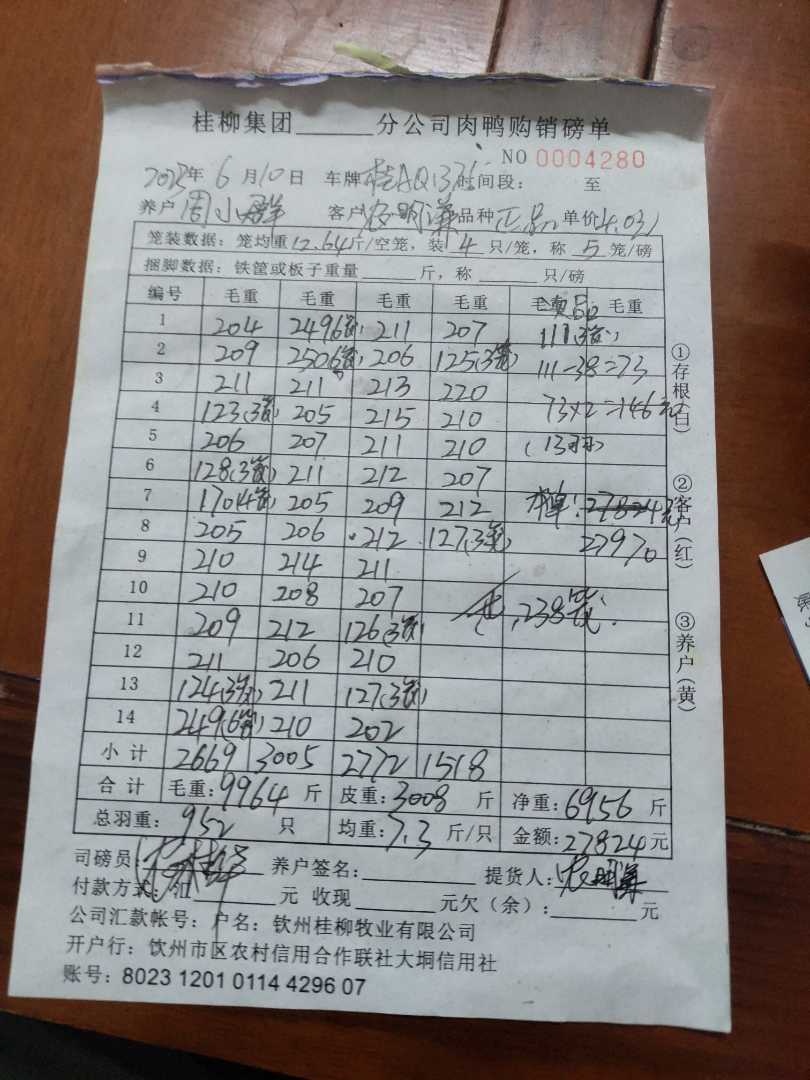 桂柳集团______分公司肉鸭购销磅单
NO 0004280
2023年 6月10日 车牌 桂AQ 时间段: 至
养户 周小群 客户 农明 品种 正品 单价 4.03
笼装数据:笼均重12.64斤/空笼,装 4 只/笼,称 5 笼/磅
捆脚数据:铁筐或板子重量______斤,称______只/磅
编号 毛重 毛重 毛重 毛重 毛重 毛重
1 204 249(6笼) 211 207 111(3笼)
2 209 250(6笼) 206 125(3笼) 111-38=73
3 211 211 213 220
4 123(3笼) 205 215 210 73×2=146元
5 206 207 211 210 (13羽)
6 128(3笼) 211 212 207
7 170(4笼) 205 209 212 27824元
8 205 206 212 127(3笼) 27970
9 210 214 211
10 210 208 207
11 209 212 126(3笼) 238笼
12 211 206 210
13 124(3笼) 211 127(3笼)
14 249(6笼) 210 202
小计 2669 3005 2772 1518
合计 毛重:9964斤 皮重:3008斤 净重:6956斤
总羽重:952只 均重:7.3斤/只 金额:27824元
司磅员: 养户签名:______ 提货人:农明
付款方式:汇______元 收现______元欠(余):______元
公司汇款帐号:户名:钦州桂柳牧业有限公司
开户行:钦州市区农村信用合作联社大垌信用社
账号:8023 1201 0114 4296 07
①存根(白) ②客户(红) ③养户(黄)